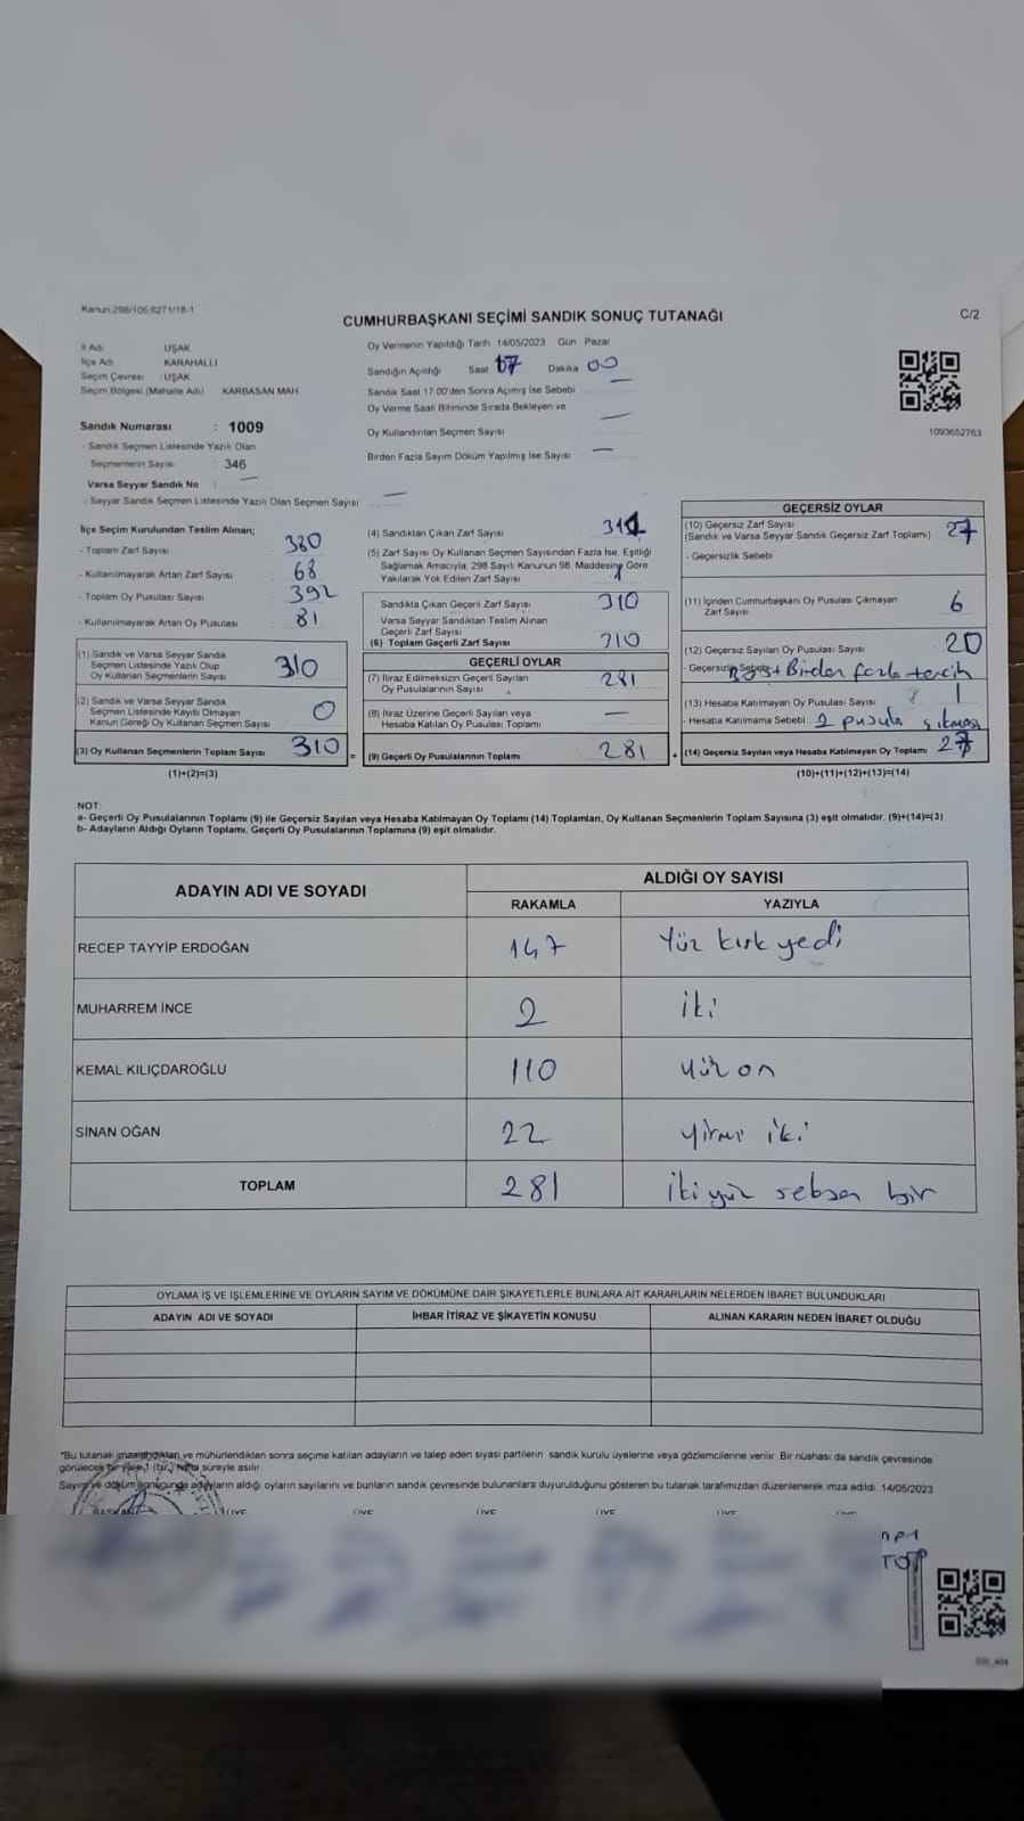 Kanun:298/106.6271/18-1
CUMHURBAŞKANI SEÇİMİ SANDIK SONUÇ TUTANAĞI
C/2
İl Adı UŞAK
İlçe Adı KARAHALLI
Seçim Çevresi : UŞAK
Seçim Bölgesi (Mahalle Adı) KARBASAN MAH
Sandık Numarası : 1009
- Sandık Seçmen Listesinde Yazılı Olan
Seçmenlerin Sayısı : 346
Varsa Seyyar Sandık No : —
- Seyyar Sandık Seçmen Listesinde Yazılı Olan Seçmen Sayısı —
Oy Vermenin Yapıldığı Tarih 14/05/2023 Gün Pazar
Sandığın Açıldığı Saat 17 Dakika 00
Sandık Saat 17.00'den Sonra Açımış İse Sebebi —
Oy Verme Saati Bitiminde Sırada Bekleyen ve
Oy Kullandırılan Seçmen Sayısı —
Birden Fazla Sayım Döküm Yapılmış İse Sayısı —
1090652763
İlçe Seçim Kurulundan Teslim Alınan;
- Toplam Zarf Sayısı 380
- Kullanılmayarak Artan Zarf Sayısı 68
- Toplam Oy Pusulası Sayısı 392
- Kullanılmayarak Artan Oy Pusulası 81
(1) Sandık ve Varsa Seyyar Sandık
Seçmen Listesinde Yazılı Olup
Oy Kullanan Seçmenlerin Sayısı 310
(2) Sandık ve Varsa Seyyar Sandık
Seçmen Listesinde Kayıtlı Olmayan
Kanun Gereği Oy Kullanan Seçmen Sayısı 0
(3) Oy Kullanan Seçmenlerin Toplam Sayısı 310 =
(1)+(2)=(3)
(4) Sandıktan Çıkan Zarf Sayısı 311
(5) Zarf Sayısı Oy Kullanan Seçmen Sayısından Fazla İse, Eşitliği
Sağlamak Amacıyla, 298 Sayılı Kanunun 98. Maddesine Göre
Yakılarak Yok Edilen Zarf Sayısı 1
Sandıkta Çıkan Geçerli Zarf Sayısı 310
Varsa Seyyar Sandıktan Teslim Alınan
Geçerli Zarf Sayısı
(6) Toplam Geçerli Zarf Sayısı 310
GEÇERLİ OYLAR
(7) İtiraz Edilmeksizin Geçerli Sayılan
Oy Pusulalarının Sayısı 281
(8) İtiraz Üzerine Geçerli Sayılan veya
Hesaba Katılan Oy Pusulası Toplamı —
(9) Geçerli Oy Pusulalarının Toplamı 281 +
GEÇERSİZ OYLAR
(10) Geçersiz Zarf Sayısı
(Sandık ve Varsa Seyyar Sandık Geçersiz Zarf Toplamı) 27
- Geçersizlik Sebebi
(11) İçinden Cumhurbaşkanı Oy Pusulası Çıkmayan
Zarf Sayısı 6
(12) Geçersiz Sayılan Oy Pusulası Sayısı 20
- Geçersizlik Sebebi: Boş + Birden fazla tercih
(13) Hesaba Katılmayan Oy Pusulası Sayısı 1
- Hesaba Katılmama Sebebi: 2 pusula çıkması
(14) Geçersiz Sayılan veya Hesaba Katılmayan Oy Toplamı 27
(10)+(11)+(12)+(13)=(14)
NOT:
a- Geçerli Oy Pusulalarının Toplamı (9) ile Geçersiz Sayılan veya Hesaba Katılmayan Oy Toplamı (14) Toplamları, Oy Kullanan Seçmenlerin Toplam Sayısına (3) eşit olmalıdır. (9)+(14)=(3)
b- Adayların Aldığı Oyların Toplamı, Geçerli Oy Pusulalarının Toplamına (9) eşit olmalıdır.
ADAYIN ADI VE SOYADI
ALDIĞI OY SAYISI
RAKAMLA YAZIYLA
RECEP TAYYİP ERDOĞAN 147 Yüz kırk yedi
MUHARREM İNCE 2 iki
KEMAL KILIÇDAROĞLU 110 yüz on
SİNAN OĞAN 22 yirmi iki
TOPLAM 281 iki yüz seksen bir
OYLAMA İŞ VE İŞLEMLERİNE VE OYLARIN SAYIM VE DÖKÜMÜNE DAİR ŞİKAYETLERLE BUNLARA AİT KARARLARIN NELERDEN İBARET BULUNDUKLARI
ADAYIN ADI VE SOYADI İHBAR İTİRAZ VE ŞİKAYETİN KONUSU ALINAN KARARIN NEDEN İBARET OLDUĞU
*Bu tutanak imzalandıktan ve mühürlendikten sonra seçime katılan adayların ve talep eden siyasi partilerin sandık kurulu üyelerine veya gözlemcilerine verilir. Bir nüshası da sandık çevresinde
görülecek bir yere 1 (bir) hafta süreyle asılır.
Sayım ve döküm sonucunda adayların aldığı oyların sayılarını ve bunların sandık çevresinde bulunanlara duyurulduğunu gösteren bu tutanak tarafımızdan düzenlenerek imza edildi. 14/05/2023
BAŞKAN ÜYE ÜYE ÜYE ÜYE ÜYE